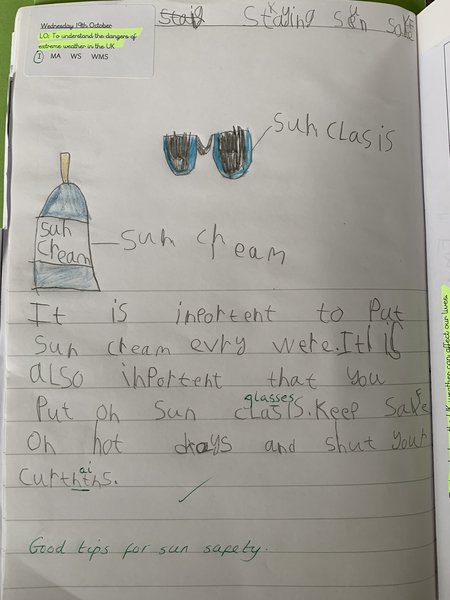 Wednesday 19th October
LO: To understand the dangers of
extreme weather in the UK
I MA WS WMS
Staying sun safe
sun clasis
sun
cream
sun cream
It is inportent to Put
sun cream evry were. It is
also inportent that you
glasses
Put on sun clasis. Keep safe
on hot days and shut your
ai
curthtns.
Good tips for sun safety.